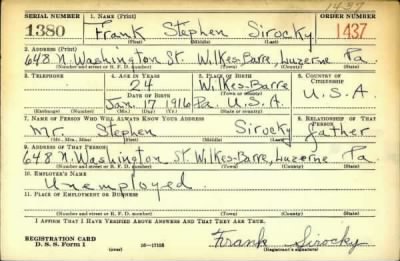 1437
SERIAL NUMBER 1. NAME (Print) ORDER NUMBER
1380 Frank Stephen Sirocky 1437
(First) (Middle) (Last)
2. ADDRESS (Print)
648 N. Washington St. Wilkes-Barre, Luzerne Pa.
(Number and street or R. F. D. number) (Town) (County) (State)
3. TELEPHONE 4. AGE IN YEARS 5. PLACE OF BIRTH 6. COUNTRY OF CITIZENSHIP
24 Wilkes-Barre
DATE OF BIRTH (Town or county)
Jan. 17 1916 Pa. U.S.A. U.S.A.
(Exchange) (Number) (Mo.) (Day) (Yr.) (State or country)
7. NAME OF PERSON WHO WILL ALWAYS KNOW YOUR ADDRESS 8. RELATIONSHIP OF THAT PERSON
Mr. Stephen Sirocky father
(Mr., Mrs., Miss) (First) (Middle) (Last)
9. ADDRESS OF THAT PERSON
648 N. Washington St. Wilkes-Barre, Luzerne Pa.
(Number and street or R. F. D. number) (Town) (County) (State)
10. EMPLOYER'S NAME
Unemployed.
11. PLACE OF EMPLOYMENT OR BUSINESS
(Number and street or R. F. D. number) (Town) (County) (State)
I AFFIRM THAT I HAVE VERIFIED ABOVE ANSWERS AND THAT THEY ARE TRUE.
REGISTRATION CARD
D. S. S. Form 1 (over) 16-17105 Frank Sirocky